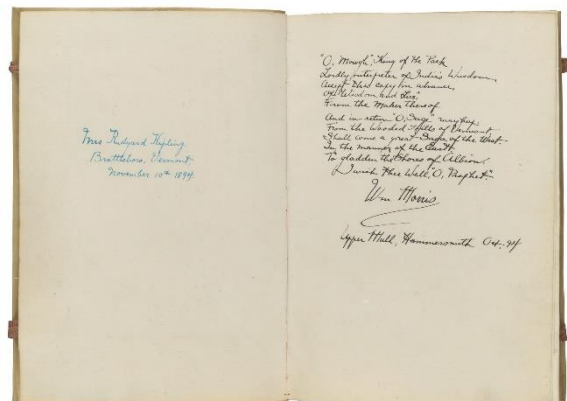 Mrs Rudyard Kipling
Brattleboro, Vermont
November 10th 1894
"O, Mowgli", King of the Pack
Lordly interpreter of India's Wisdom,
Accept this copy in advance
Of Wisdom and
From the Maker thereof
And in return O, Sage may
From the Wooded Hills of Vermont
Shall come a great Saga of the West
In the manner of the East
To gladden the shores of Albion.
I wish thee Well, O, Prophet."
Wm Morris
Upper Mall, Hammersmith Oct. 94